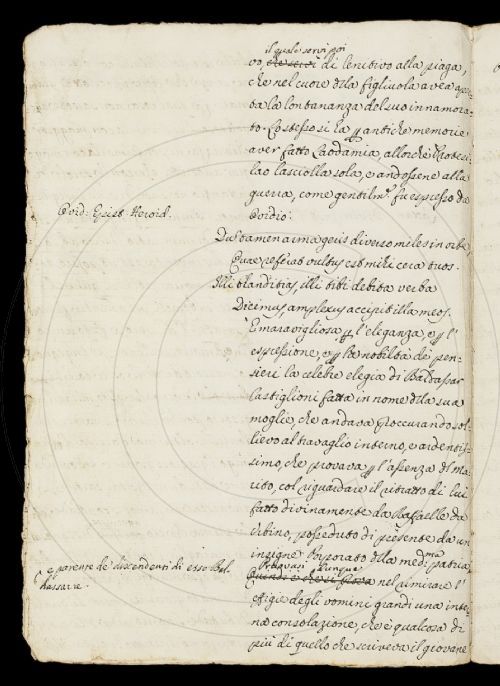 il quale servì poi
vo, che servì di lenitivo alla piaga,
che nel cuore della figliuola avea aper-
ta la lontananza del suo innamora-
to. Lo stesso si ha p antiche memorie
aver fatto Laodamia, allorchè Protesi-
lao lasciolla sola, e andossene alla
guerra, come gentilmᵉ. fu espresso da
Ovid: Epist: Heroid.
Ovidio:
Dum tamen arma geris diverso miles in orbe,
Quae referat vultus est mihi cera tuos.
Illi blanditias, illi tibi debita verba
Dicimus, amplexus accipit illa meos.
È maravigliosa p l'eleganza, e p l'
espressione, e p la nobiltà de' pen-
sieri la celebre elegia di Baldassar
Castiglioni fatta in nome della sua
moglie, che andava proccurando sol-
lievo al travaglio interno, e ardentis-
simo, che provava p l'assenza del ma-
rito, col riguardare il ritratto di lui
fatto divinamente da Raffaelle da
Urbino, posseduto di presente da un
insigne Porporato della medᵐᵃ patria,
e parente de' discendenti di esso Bal-
dassarre.
Pruovasi dunque
nel rimirare l'
effigie degli uomini grandi una inter-
na consolazione, che è qualcosa di
più di quello che scriveva il giovane